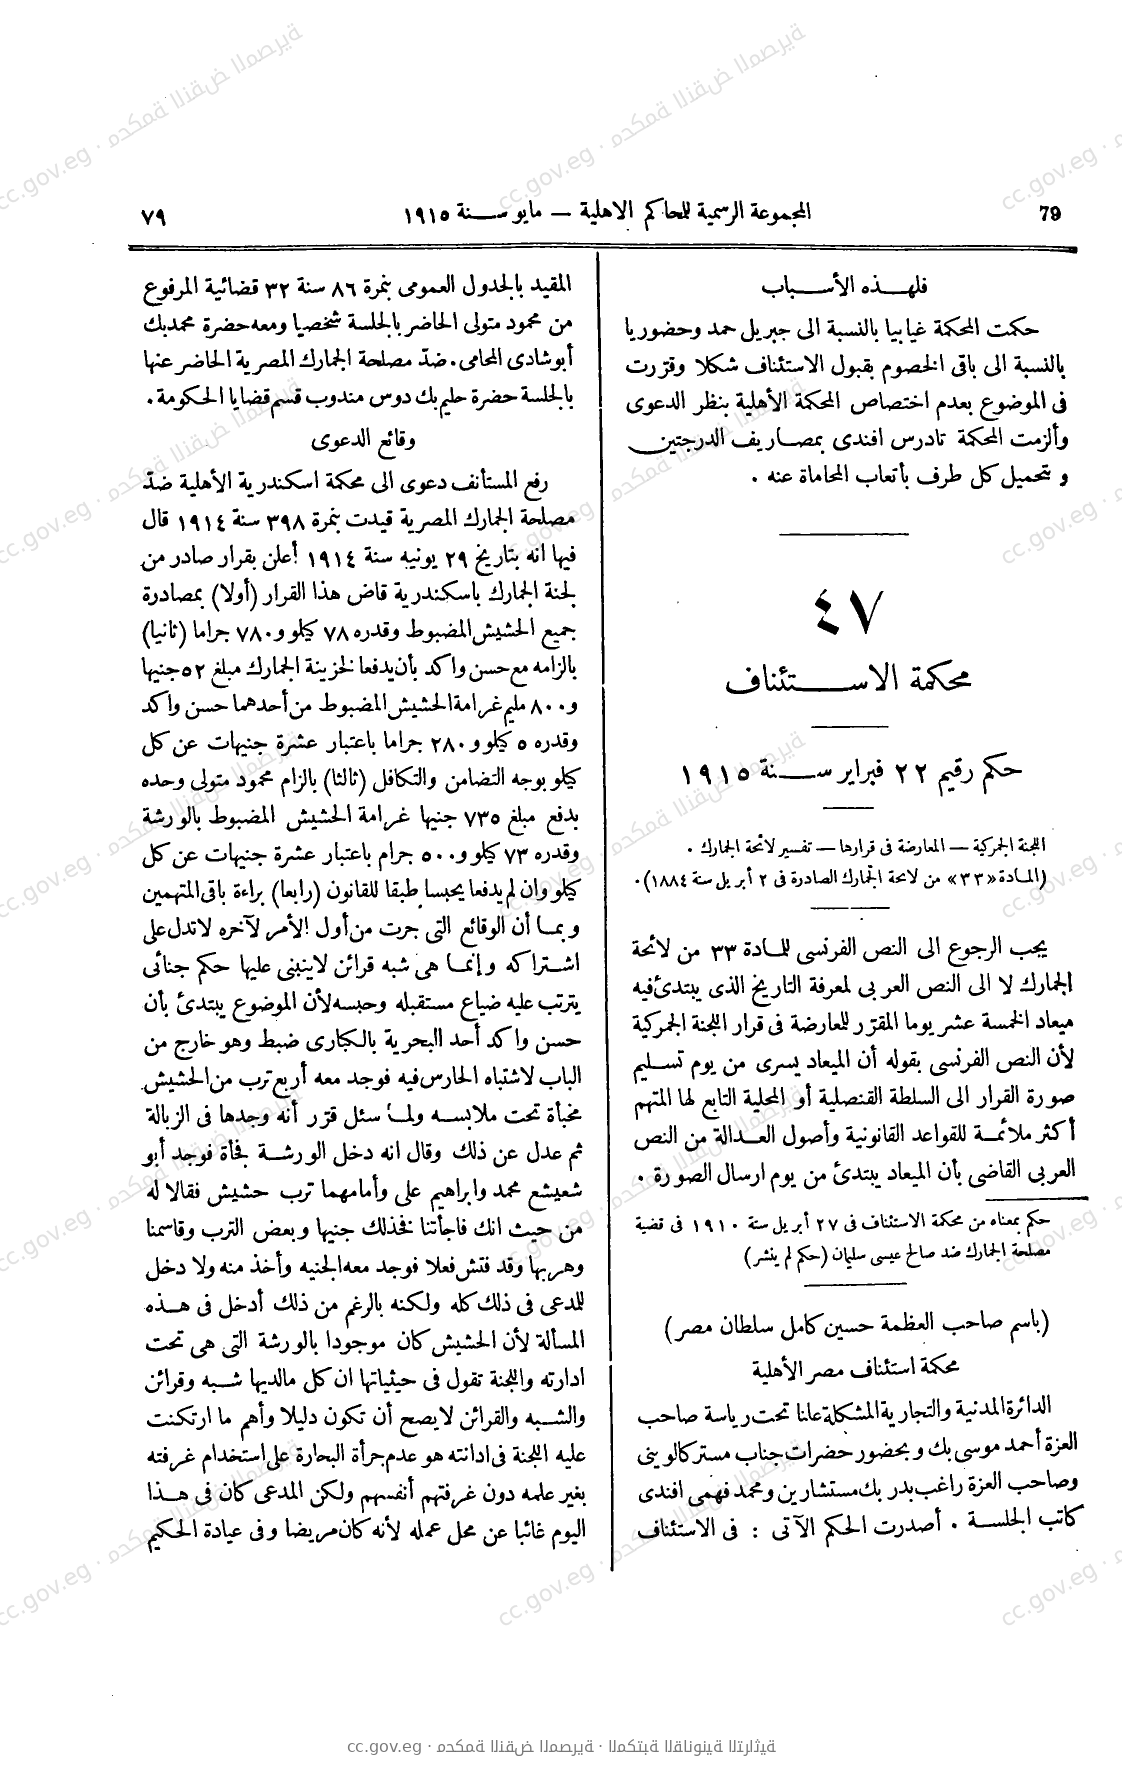 79
المجموعة الرسمية للمحاكم الاهلية — مايو سنة ١٩١٥
٧٩
فلهذه الأسباب
حكمت المحكمة غيابيا بالنسبة الى جبريل حمد وحضوريا
بالنسبة الى باقى الخصوم بقبول الاستئناف شكلا وقرّرت
فى الموضوع بعدم اختصاص المحكمة الأهلية بنظر الدعوى
وألزمت المحكمة تادرس افندى بمصاريف الدرجتين
و تحميل كل طرف بأتعاب المحاماة عنه .
٤٧
محكمة الاستئناف
حكم رقيم ٢٢ فبراير سنة ١٩١٥
اللجنة الجمركية — المعارضة فى قرارها — تفسير لائحة الجمارك .
(المادة «٣٣» من لائحة الجمارك الصادرة فى ٢ أبريل سنة ١٨٨٤).
يجب الرجوع الى النص الفرنسى للمادة ٣٣ من لائحة
الجمارك لا الى النص العربى لمعرفة التاريخ الذى يبتدئ فيه
ميعاد الخمسة عشر يوما المقرّر للمعارضة فى قرار اللجنة الجمركية
لأن النص الفرنسى بقوله أن الميعاد يسرى من يوم تسليم
صورة القرار الى السلطة القنصلية أو المحلية التابع لها المتهم
أكثر ملائمة للقواعد القانونية وأصول العدالة من النص
العربى القاضى بأن الميعاد يبتدئ من يوم ارسال الصورة .
حكم بمعناه من محكمة الاستئناف فى ٢٧ أبريل سنة ١٩١٠ فى قضية
مصلحة الجمارك ضد صالح عيسى سليمان (حكم لم ينشر)
(باسم صاحب العظمة حسين كامل سلطان مصر)
محكمة استئناف مصر الأهلية
الدائرة المدنية والتجارية المشكلة علنا تحت رياسة صاحب
العزة أحمد موسى بك وبحضور حضرات جناب مستر كالوينى
وصاحب العزة راغب بدر بك مستشارين ومحمد فهمى افندى
كاتب الجلسة . أصدرت الحكم الآتى : فى الاستئناف
المقيد بالجدول العمومى بنمرة ٨٦ سنة ٣٢ قضائية المرفوع
من محمود متولى الحاضر بالجلسة شخصيا ومعه حضرة محمد بك
أبوشادى المحامى. ضدّ مصلحة الجمارك المصرية الحاضر عنها
بالجلسة حضرة حليم بك دوس مندوب قسم قضايا الحكومة .
وقائع الدعوى
رفع المستأنف دعوى الى محكمة اسكندرية الأهلية ضدّ
مصلحة الجمارك المصرية قيدت بنمرة ٣٩٨ سنة ١٩١٤ قال
فيها انه بتاريخ ٢٩ يونيه سنة ١٩١٤ أعلن بقرار صادر من
لجنة الجمارك باسكندرية قاض هذا القرار (أولا) بمصادرة
جميع الحشيش المضبوط وقدره ٧٨ كيلو و ٧٨٠ جراما (ثانيا)
بالزامه مع حسن واكد بأن يدفعا لخزينة الجمارك مبلغ ٥٢ جنيها
و ٨٠٠ مليم غرامة الحشيش المضبوط من أحدهما حسن واكد
وقدره ٥ كيلو و ٢٨٠ جراما باعتبار عشرة جنيهات عن كل
كيلو بوجه التضامن والتكافل (ثالثا) بالزام محمود متولى وحده
بدفع مبلغ ٧٣٥ جنيها غرامة الحشيش المضبوط بالورشة
وقدره ٧٣ كيلو و ٥٠٠ جرام باعتبار عشرة جنيهات عن كل
كيلو وان لم يدفعا يحبسا طبقا للقانون (رابعا) براءة باقى المتهمين
وبما أن الوقائع التى جرت من أول الأمر لآخره لا تدل على
اشتراكه وإنما هى شبه قرائن لاينبنى عليها حكم جنائى
يترتب عليه ضياع مستقبله وحبسه لأن الموضوع يبتدئ بأن
حسن واكد أحد البحرية بالكبارى ضبط وهو خارج من
الباب لاشتباه الحارس فيه فوجد معه أربع ترب من الحشيش
مخبأة تحت ملابسه ولما سئل قرّر أنه وجدها فى الزبالة
ثم عدل عن ذلك وقال انه دخل الورشة فجأة فوجد أبو
شعيشع محمد وابراهيم على وأمامهما ترب حشيش فقالا له
من حيث انك فاجأتنا فخذلك جنيها وبعض الترب وقاسمنا
وهربها وقد فتش فعلا فوجد معه الجنيه وأخذ منه ولا دخل
للمدعى فى ذلك كله ولكنه بالرغم من ذلك أدخل فى هذه
المسألة لأن الحشيش كان موجودا بالورشة التى هى تحت
ادارته واللجنة تقول فى حيثياتها ان كل مالديها شبه وقرائن
والشبه والقرائن لايصح أن تكون دليلا وأهم ما ارتكنت
عليه اللجنة فى ادانته هو عدم جرأة البحارة على استخدام غرفته
بغير علمه دون غرفتهم أنفسهم ولكن المدعى كان فى هذا
اليوم غائبا عن محل عمله لأنه كان مريضا وفى عيادة الحكيم
cc.gov.eg · محكمة النقض المصرية · المكتبة القانونية التراثية